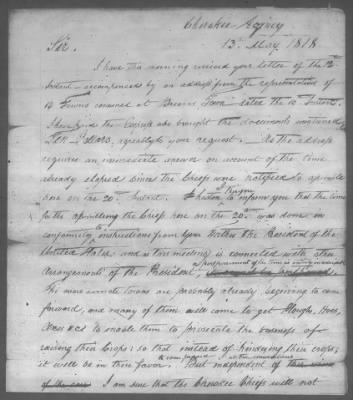 Cherokee Agency
13th May 1818
Sir.
I have this morning received your letter of the 12th
Instant accompanied by an address from the representatives of
14 Towns convened at Brooms Town dated the 10th Instant.
I have paid the Couriers who brought the documents
agreeably to your request. As the address
requires an immediate answer on account of the time
already elapsed since the Chiefs were notified to assemble
here on the 20th Instant. I hasten to inform you that the time
for the assembling the Chiefs here on the 20th was done in
conformity instructions from your Father the President of the
United States, and as this meeting is connected with other
arrangements of the President
The more remote towns are probably already begining to come
forward, and many of them will come to get Ploughs, Hoes,
Axes &c to enable them to prosecute the business of
raising their Crops: so that instead of hindering their crops,
it will be in their favor. But independent of
I am sure that the Cherokee Chiefs will not